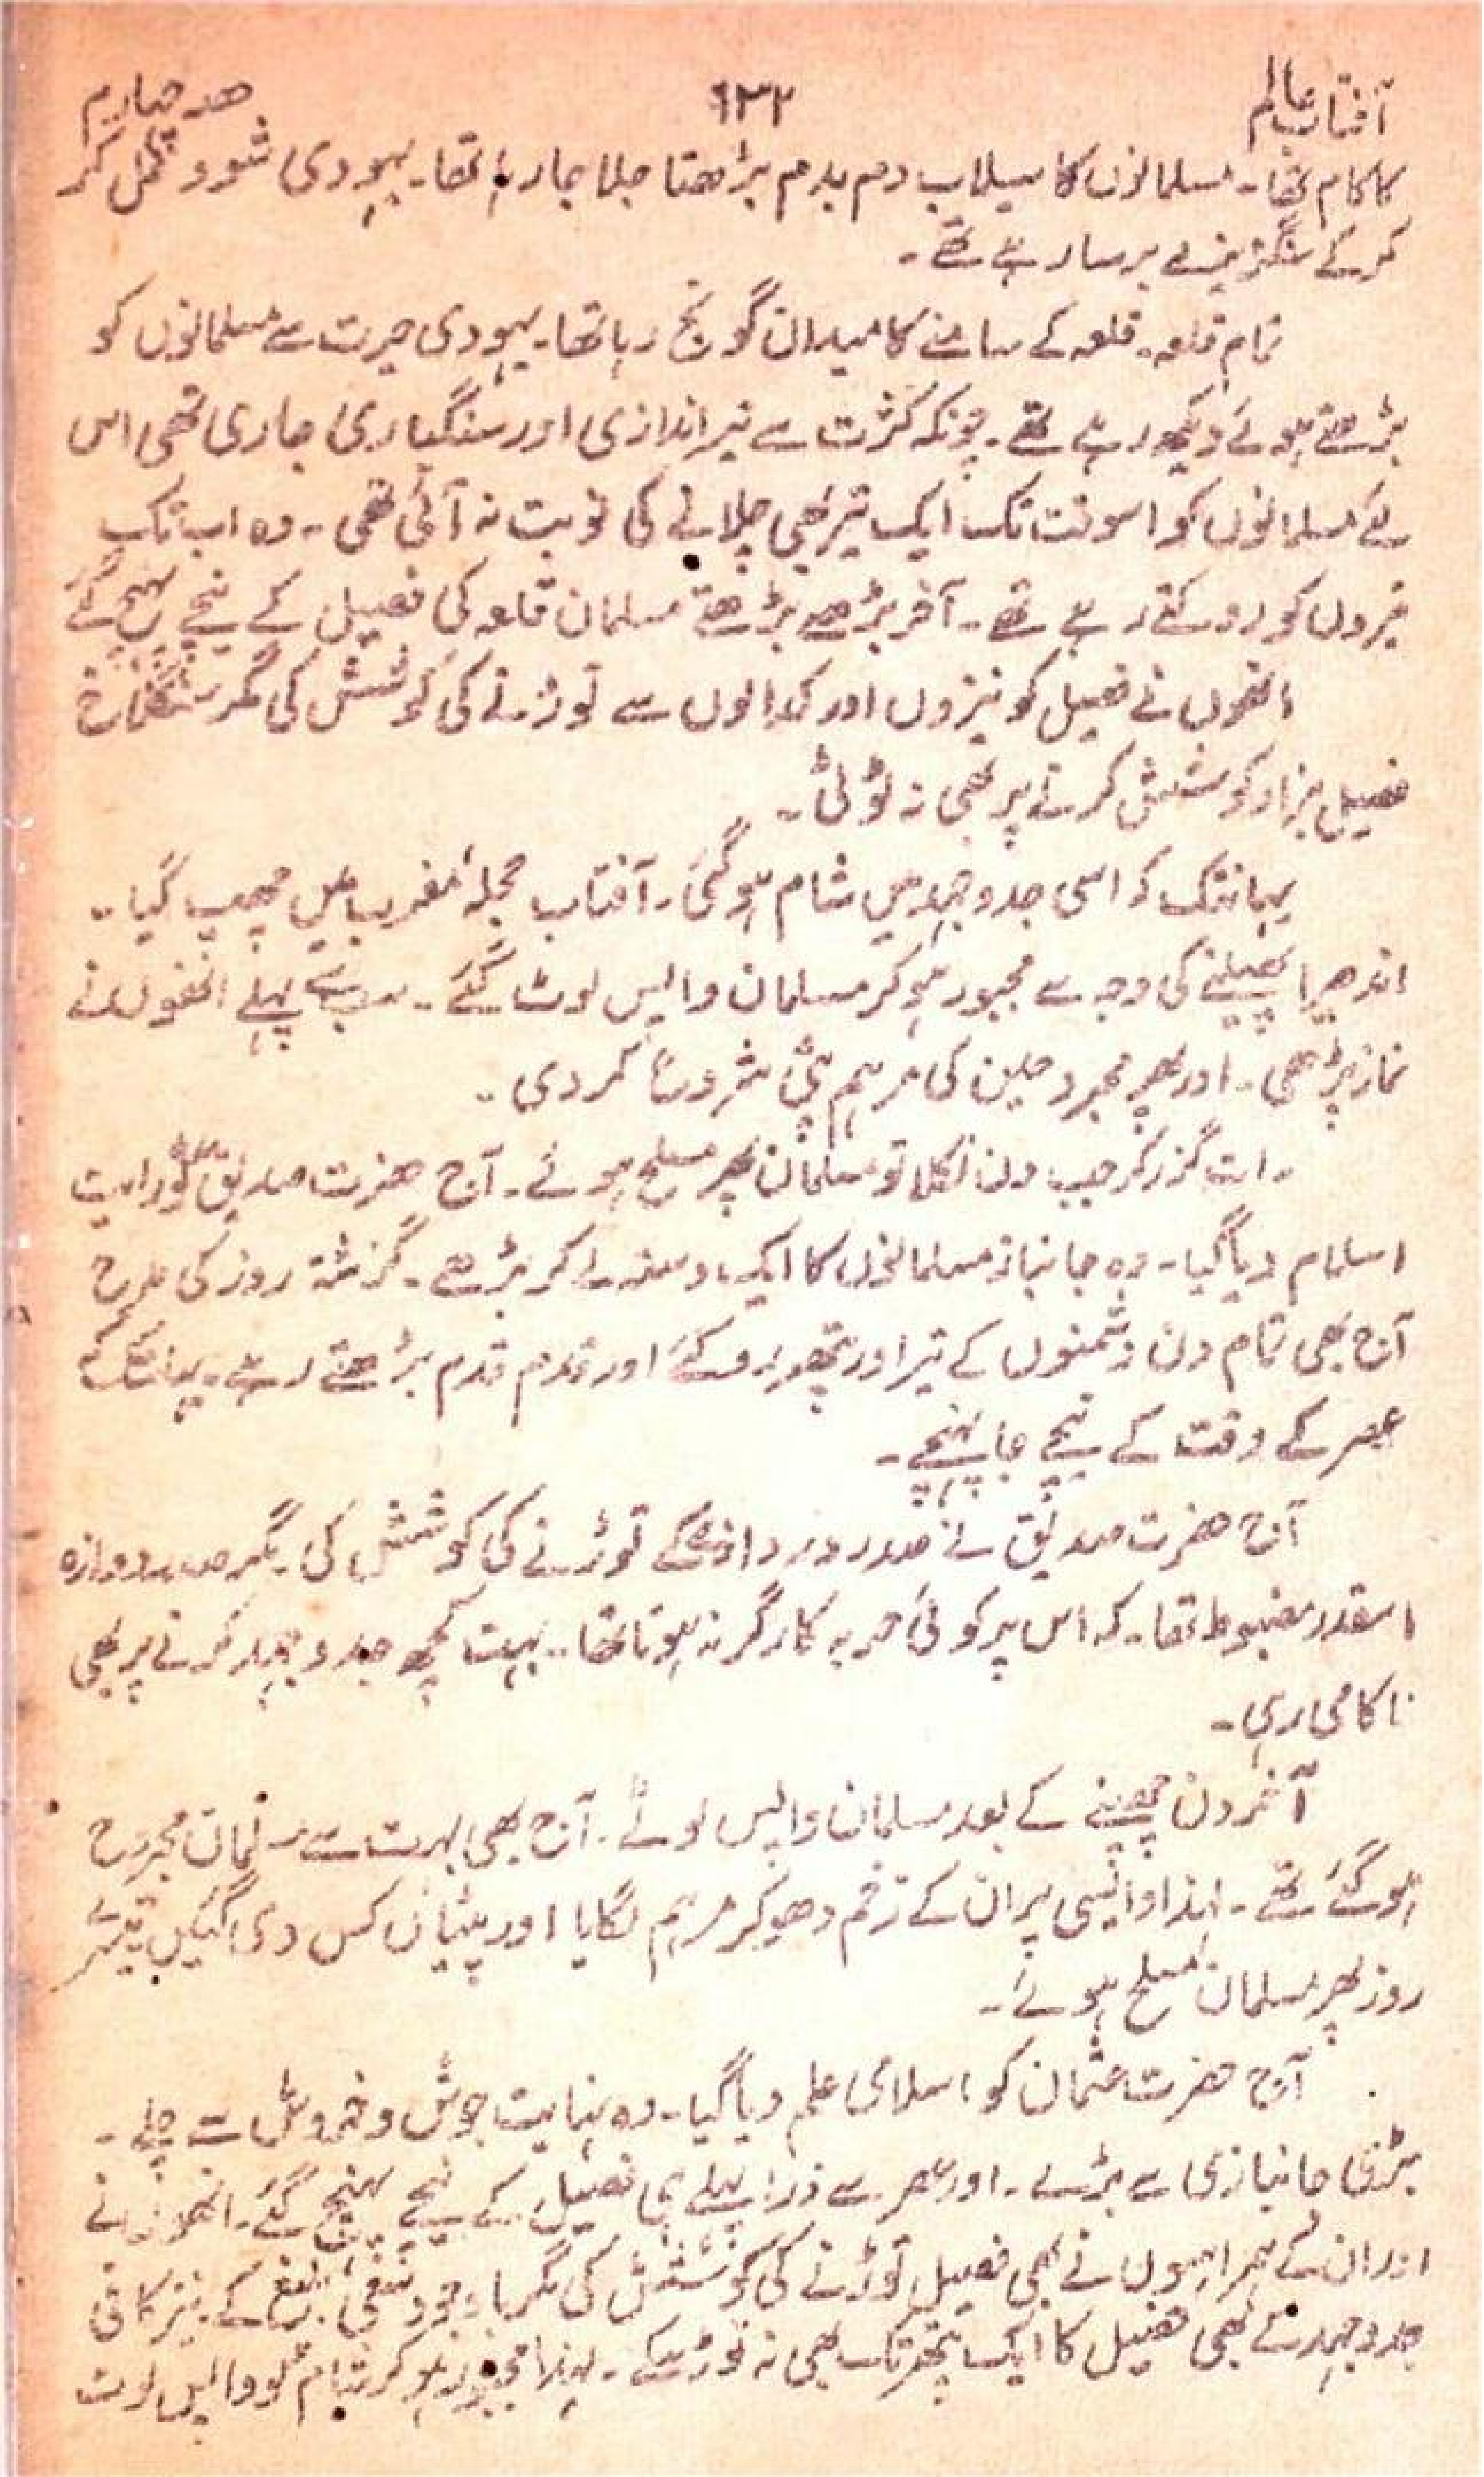 آفتاب عالم ۶۳۲ حصہ چہارم
کا کام تھا۔ مسلمانوں کا سیلاب دم بدم بڑھتا چلا جا رہا تھا۔ یہودی شور و غل کر
کر کے سنگریزے برسا رہے تھے۔
تمام قلعہ۔ قلعہ کے سامنے کا میدان گونج رہا تھا۔ یہودی حیرت سے مسلمانوں کو
بڑھتے ہوئے دیکھ رہے تھے۔ چونکہ کثرت سے تیر اندازی اور سنگباری جاری تھی اس
لئے مسلمانوں کو اسوقت تک ایک تیر بھی چلانے کی نوبت نہ آئی تھی۔ وہ اب تک
تیروں کو روکتے رہے تھے۔ آخر بڑھتے بڑھتے مسلمان قلعہ کی فصیل کے نیچے پہنچ گئے
انھوں نے فصیل کو نیزوں اور کدالوں سے توڑنے کی کوشش کی مگر سنگلاخ
فصیل ہزار کوشش کرنے پر بھی نہ ٹوٹی۔
یہانتک کہ اسی جدوجہد میں شام ہوگئی۔ آفتاب حجلہ مغرب میں چھپ گیا۔
اندھیرا پھیلنے کی وجہ سے مجبور ہوکر مسلمان واپس لوٹ گئے۔ سب سے پہلے انھوں نے
نماز پڑھی۔ اور پھر مجروحین کی مرہم پٹی شروع کر دی۔
رات گزر کر جب دن نکلا تو مسلمان پھر مسلح ہوئے۔ آج حضرت صدیق کو رایت
اسلام دیا گیا۔ وہ جانباز مسلمانوں کا ایک دستہ لے کر بڑھے۔ گزشتہ روز کی طرح
آج بھی تمام دن دشمنوں کے تیر اور پتھر روکتے اور قدم قدم بڑھتے رہے۔ یہانتک کہ
عصر کے وقت کے نیچے جا پہنچے۔
آج حضرت صدیق نے صدر دروازے کے توڑنے کی کوشش کی۔ مگر صدر دروازہ
اسقدر مضبوط تھا۔ کہ اس پر کوئی حربہ کارگر نہ ہوتا تھا۔ بہت کچھ جدو جہد کرنے پر بھی
ناکامی رہی۔
آخر دن چھپنے کے بعد مسلمان واپس لوٹے۔ آج بھی بہت سے مسلمان مجروح
ہوگئے تھے۔ لہذا واپسی پر ان کے زخم دھوکر مرہم لگایا اور پٹیاں کس دی گئیں تیسرے
روز پھر مسلمان مسلح ہوئے۔
آج حضرت عثمان کو اسلامی علم دیا گیا۔ وہ نہایت جوش و خروش سے چلے۔
بڑی جانبازی سے بڑھے۔ اور عصر سے ذرا پہلے ہی فصیل کے نیچے پہنچ گئے۔ انھوں نے
اور ان کے ہمراہیوں نے بھی فصیل توڑنے کی کوشش کی مگر باوجود سعی بلیغ کے نیز کافی
جدوجہد کے بھی فصیل کا ایک پتھر تک بھی نہ توڑ سکے۔ لہذا مجبور ہو کر شام کو واپس لوٹ